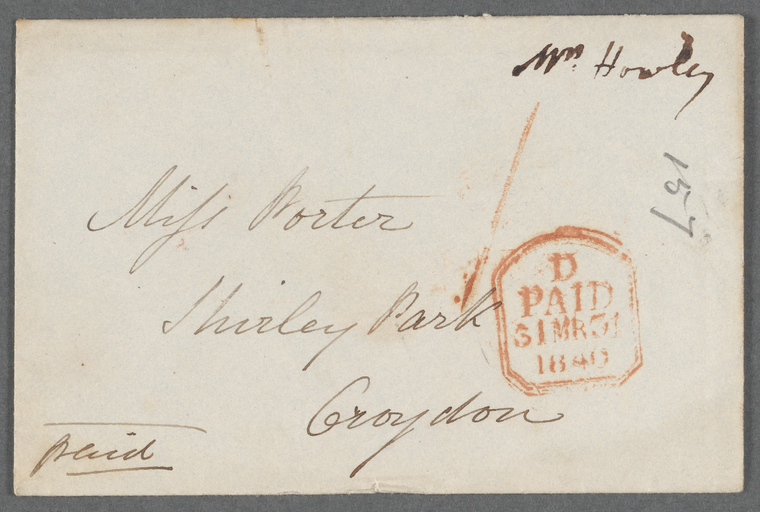 Mrs. Howley
157
Miss Porter
Shirley Park
Croydon
D
PAID
31 MR 31
1840
paid